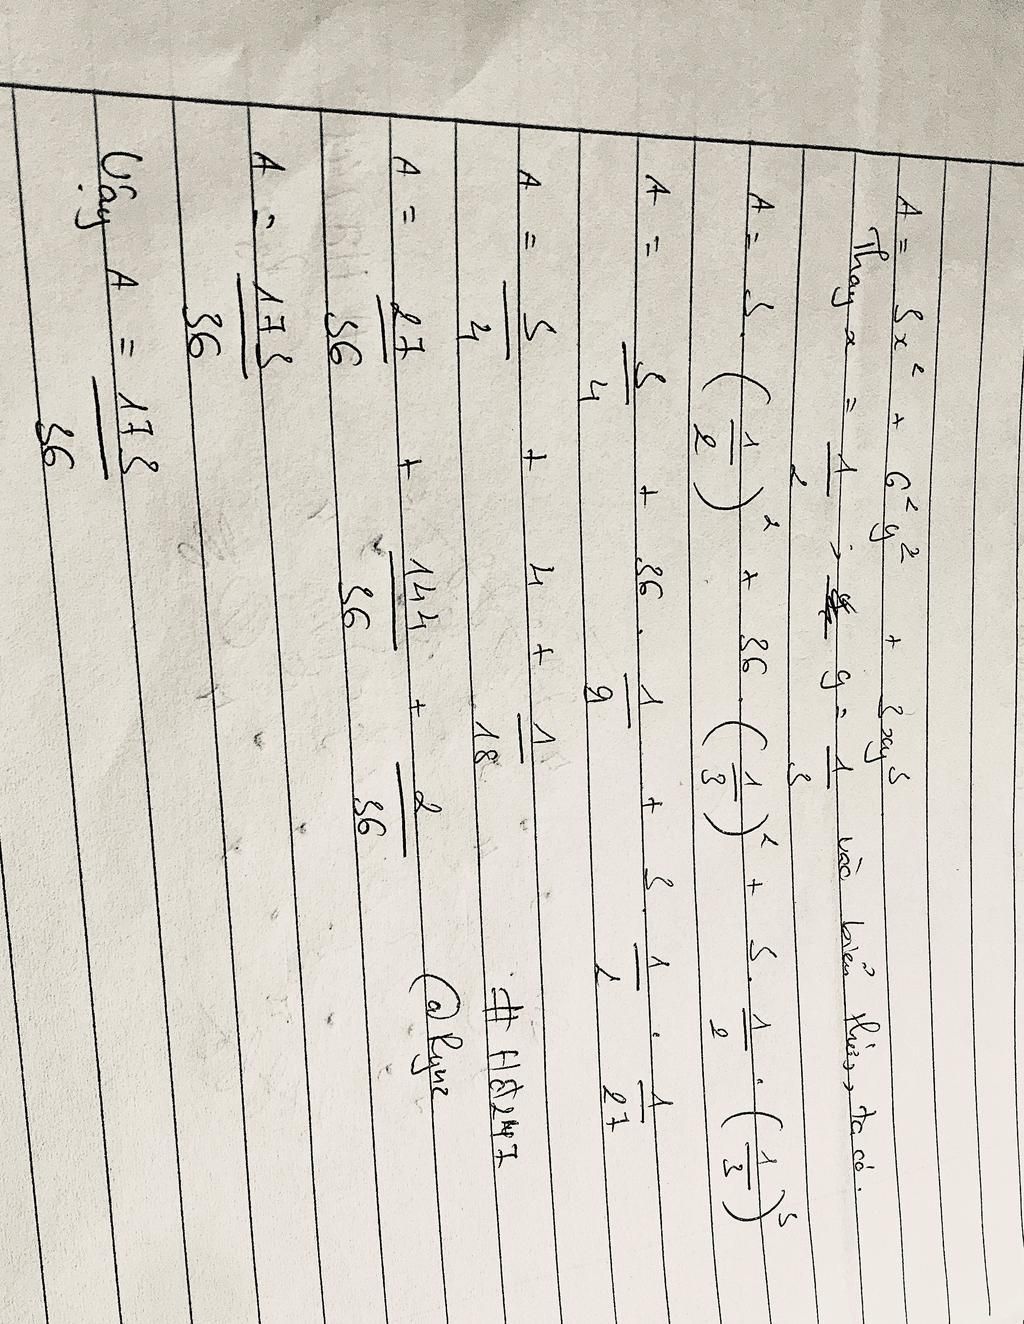 A = 3x² + 6²y² + 3xy³
Thay x = 1/2 ; y = 1/3 vào biểu thức, ta có.
A = 3. (1/2)² + 36. (1/3)² + 3. 1/2 . (1/3)³
A = 3/4 + 36 . 1/9 + 3. 1/2 . 1/27
A = 3/4 + 4 + 1/18
A = 27/36 + 144/36 + 2/36
A = 173/36
Vậy A = 173/36